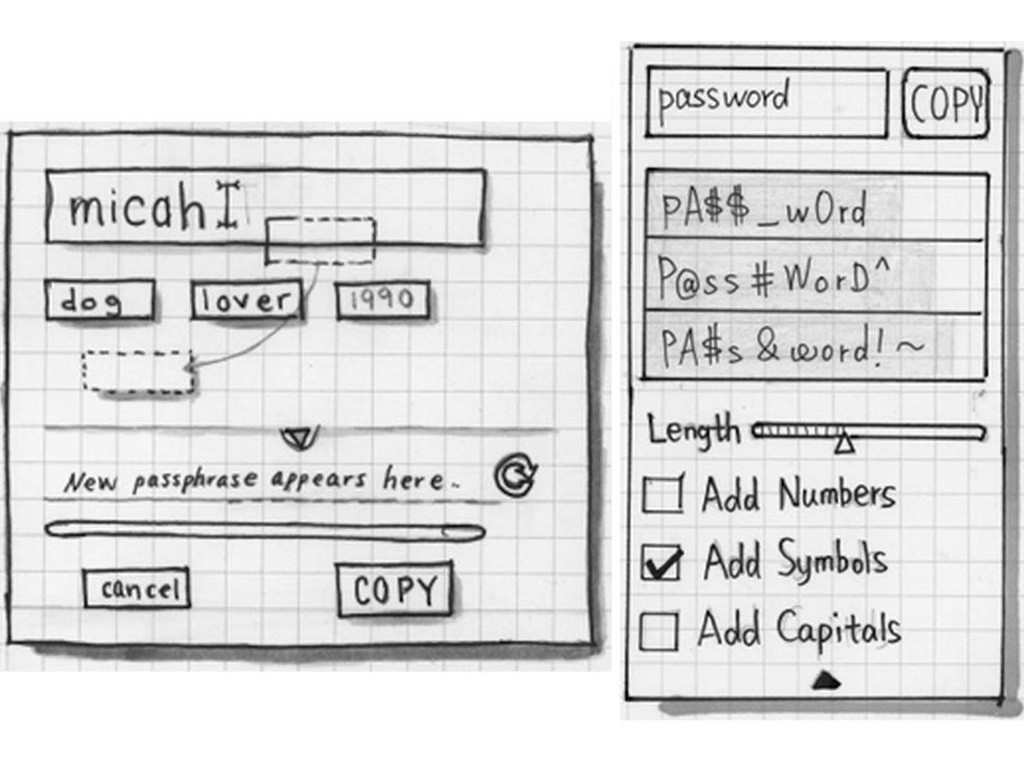 micah
dog lover 1990
New passphrase appears here.
cancel COPY
password COPY
pA$$_wOrd
P@ss#WorD^
PA$s&word!~
Length
Add Numbers
Add Symbols
Add Capitals